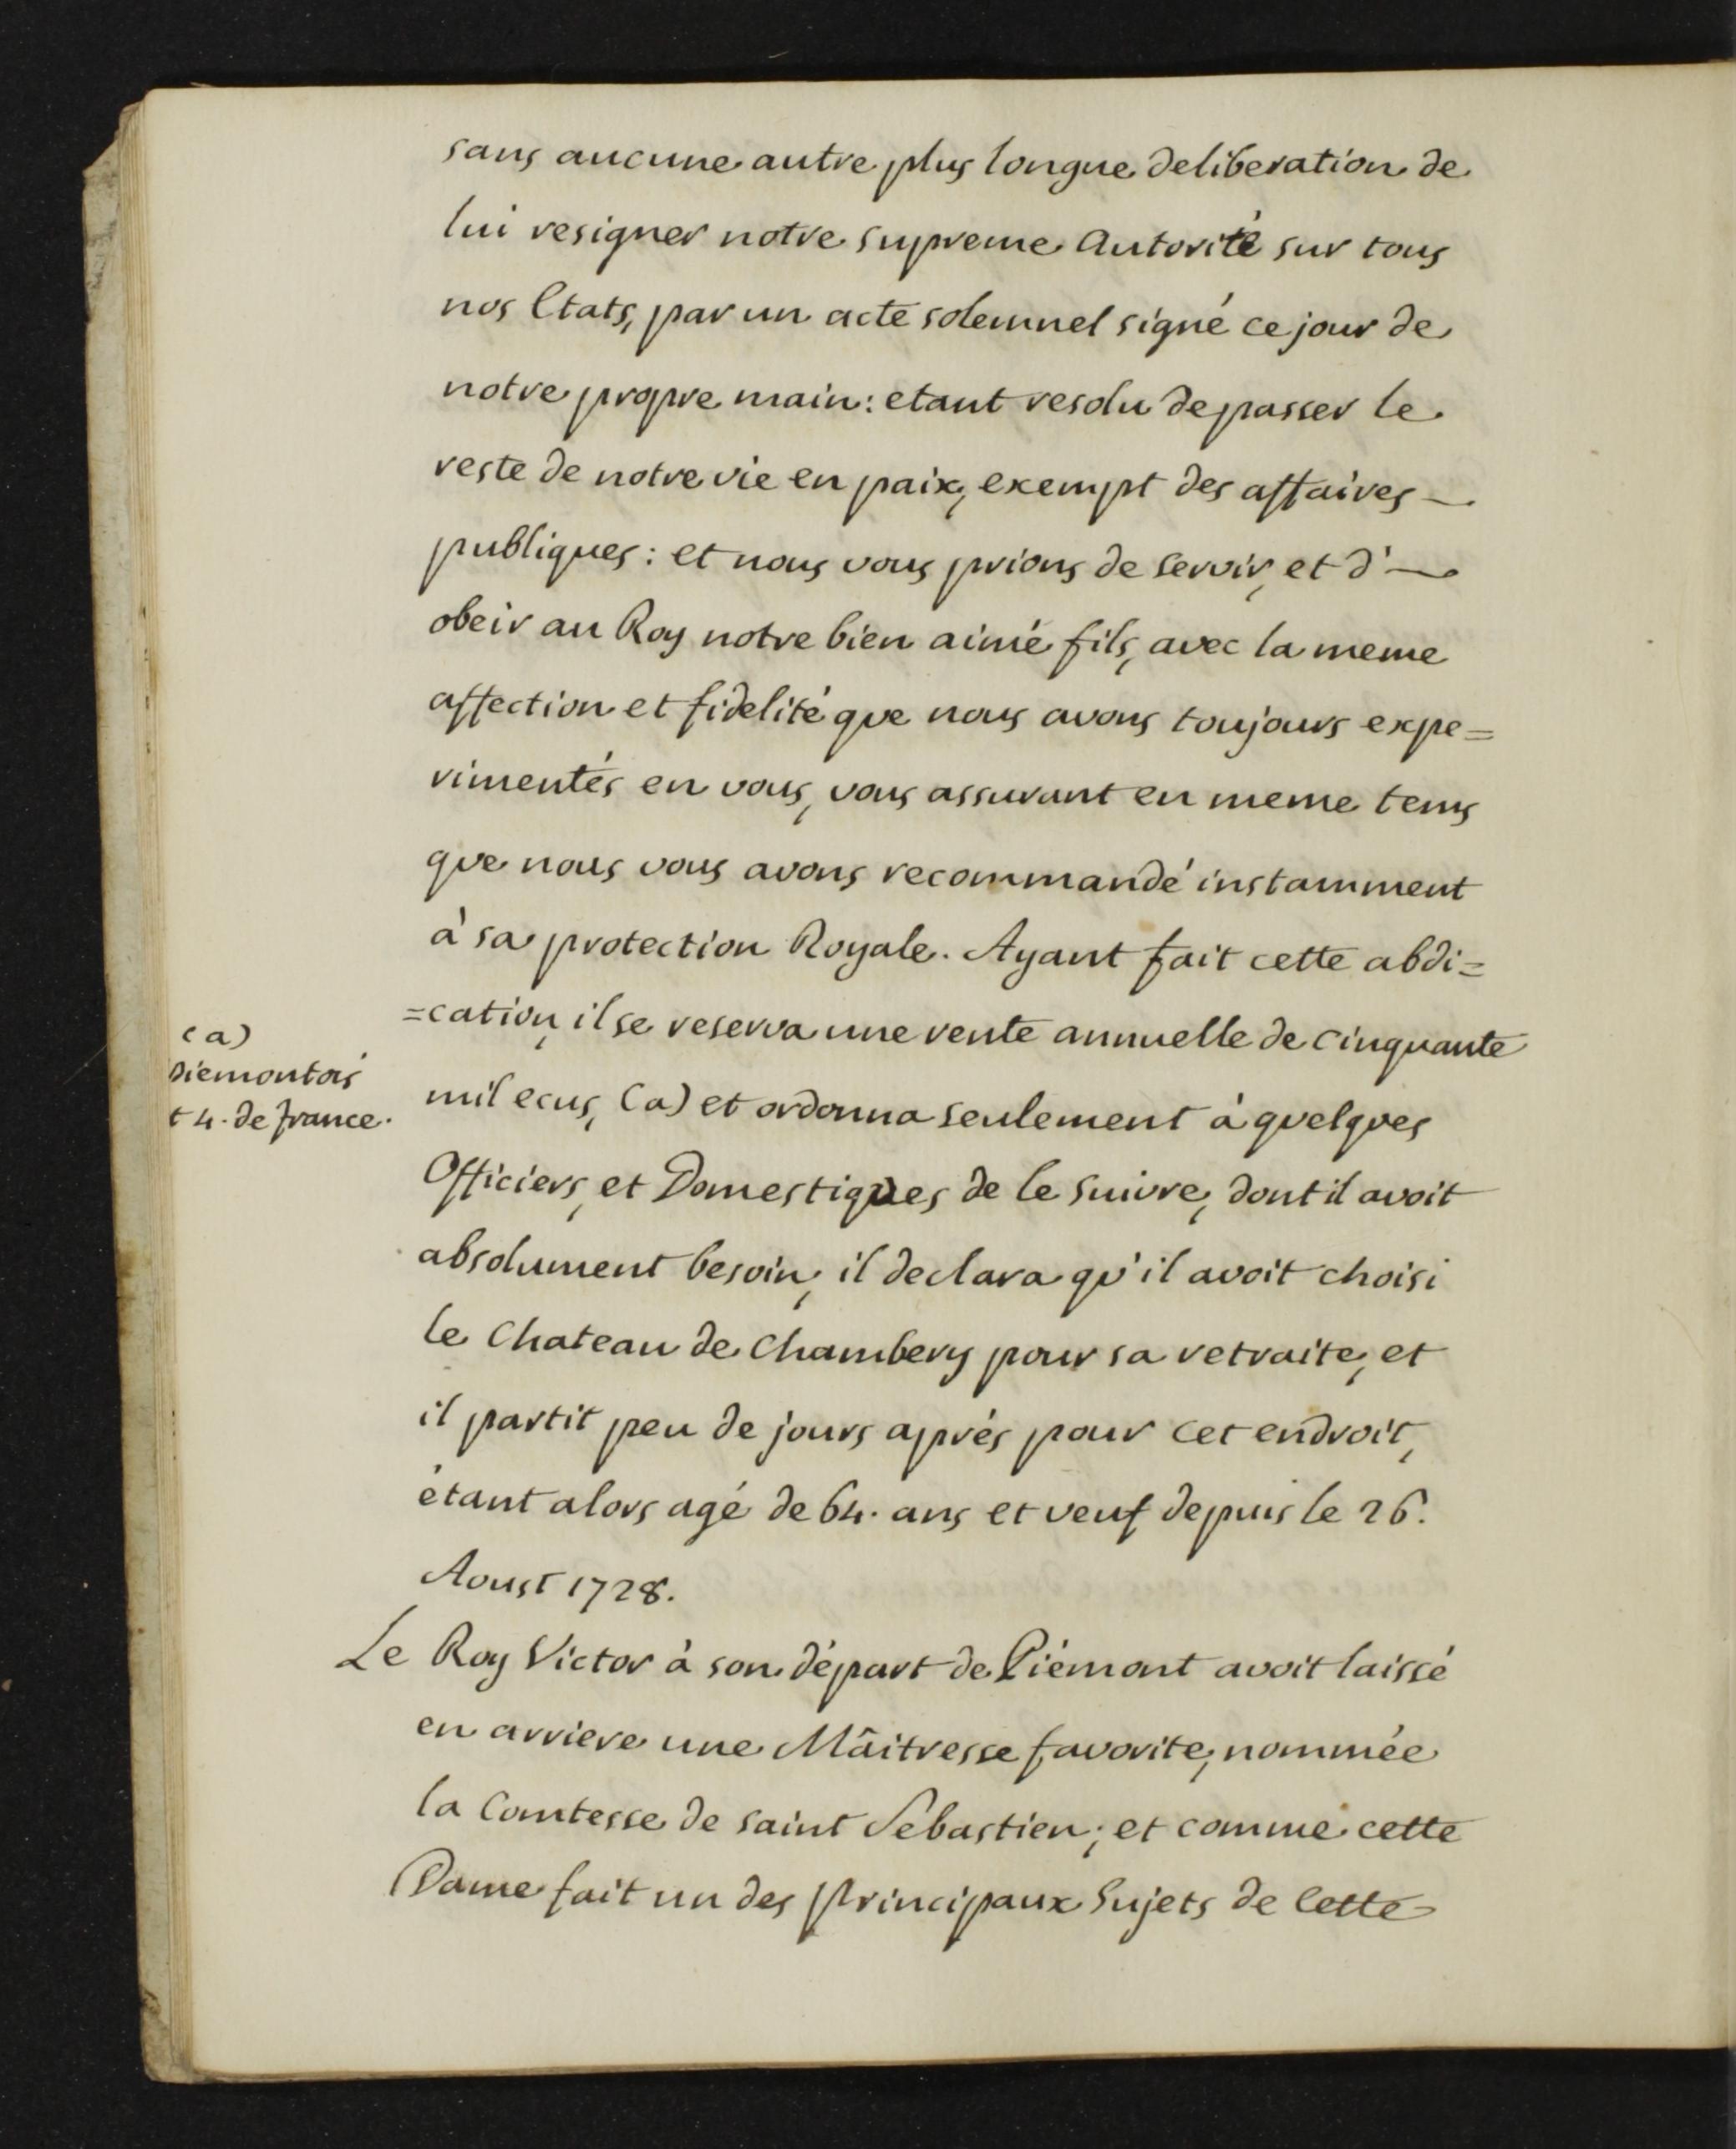 sans aucune autre plus longue deliberation de
lui resigner notre supreme Autorité sur tous
nos Etats, par un acte solemnel signé ce jour de
notre propre main: etant resolu de passer le
reste de notre vie en paix, exempt des affaires —
publiques: et nous vous prions de servir, et d'—
obeir au Roy notre bien aimé fils, avec la meme
affection et fidelité que nous avons toujours expe=
rimentés en vous, vous assurant en meme tems
que nous vous avons recommandé instamment
à sa protection Royale. Ayant fait cette abdi=
=cation, il se reserva une rente annuelle de cinquante
(a)
Piemontois
t 4. de france.
mil ecus, (a) et ordonna seulement à quelques
Officiers, et Domestiques de le suivre, dont il avoit
absolument besoin, il declara qu'il avoit choisi
le Chateau de Chambery pour sa retraite, et
il partit peu de jours aprés pour cet endroit,
étant alors agé de 64. ans et veuf depuis le 26.
Aoust 1728.
Le Roy Victor à son départ de Piémont avoit laissé
en arriere une Mâitresse favorite, nommée
la Comtesse de saint Sebastien; et comme cette
Dame fait un des Principaux Sujets de Cette